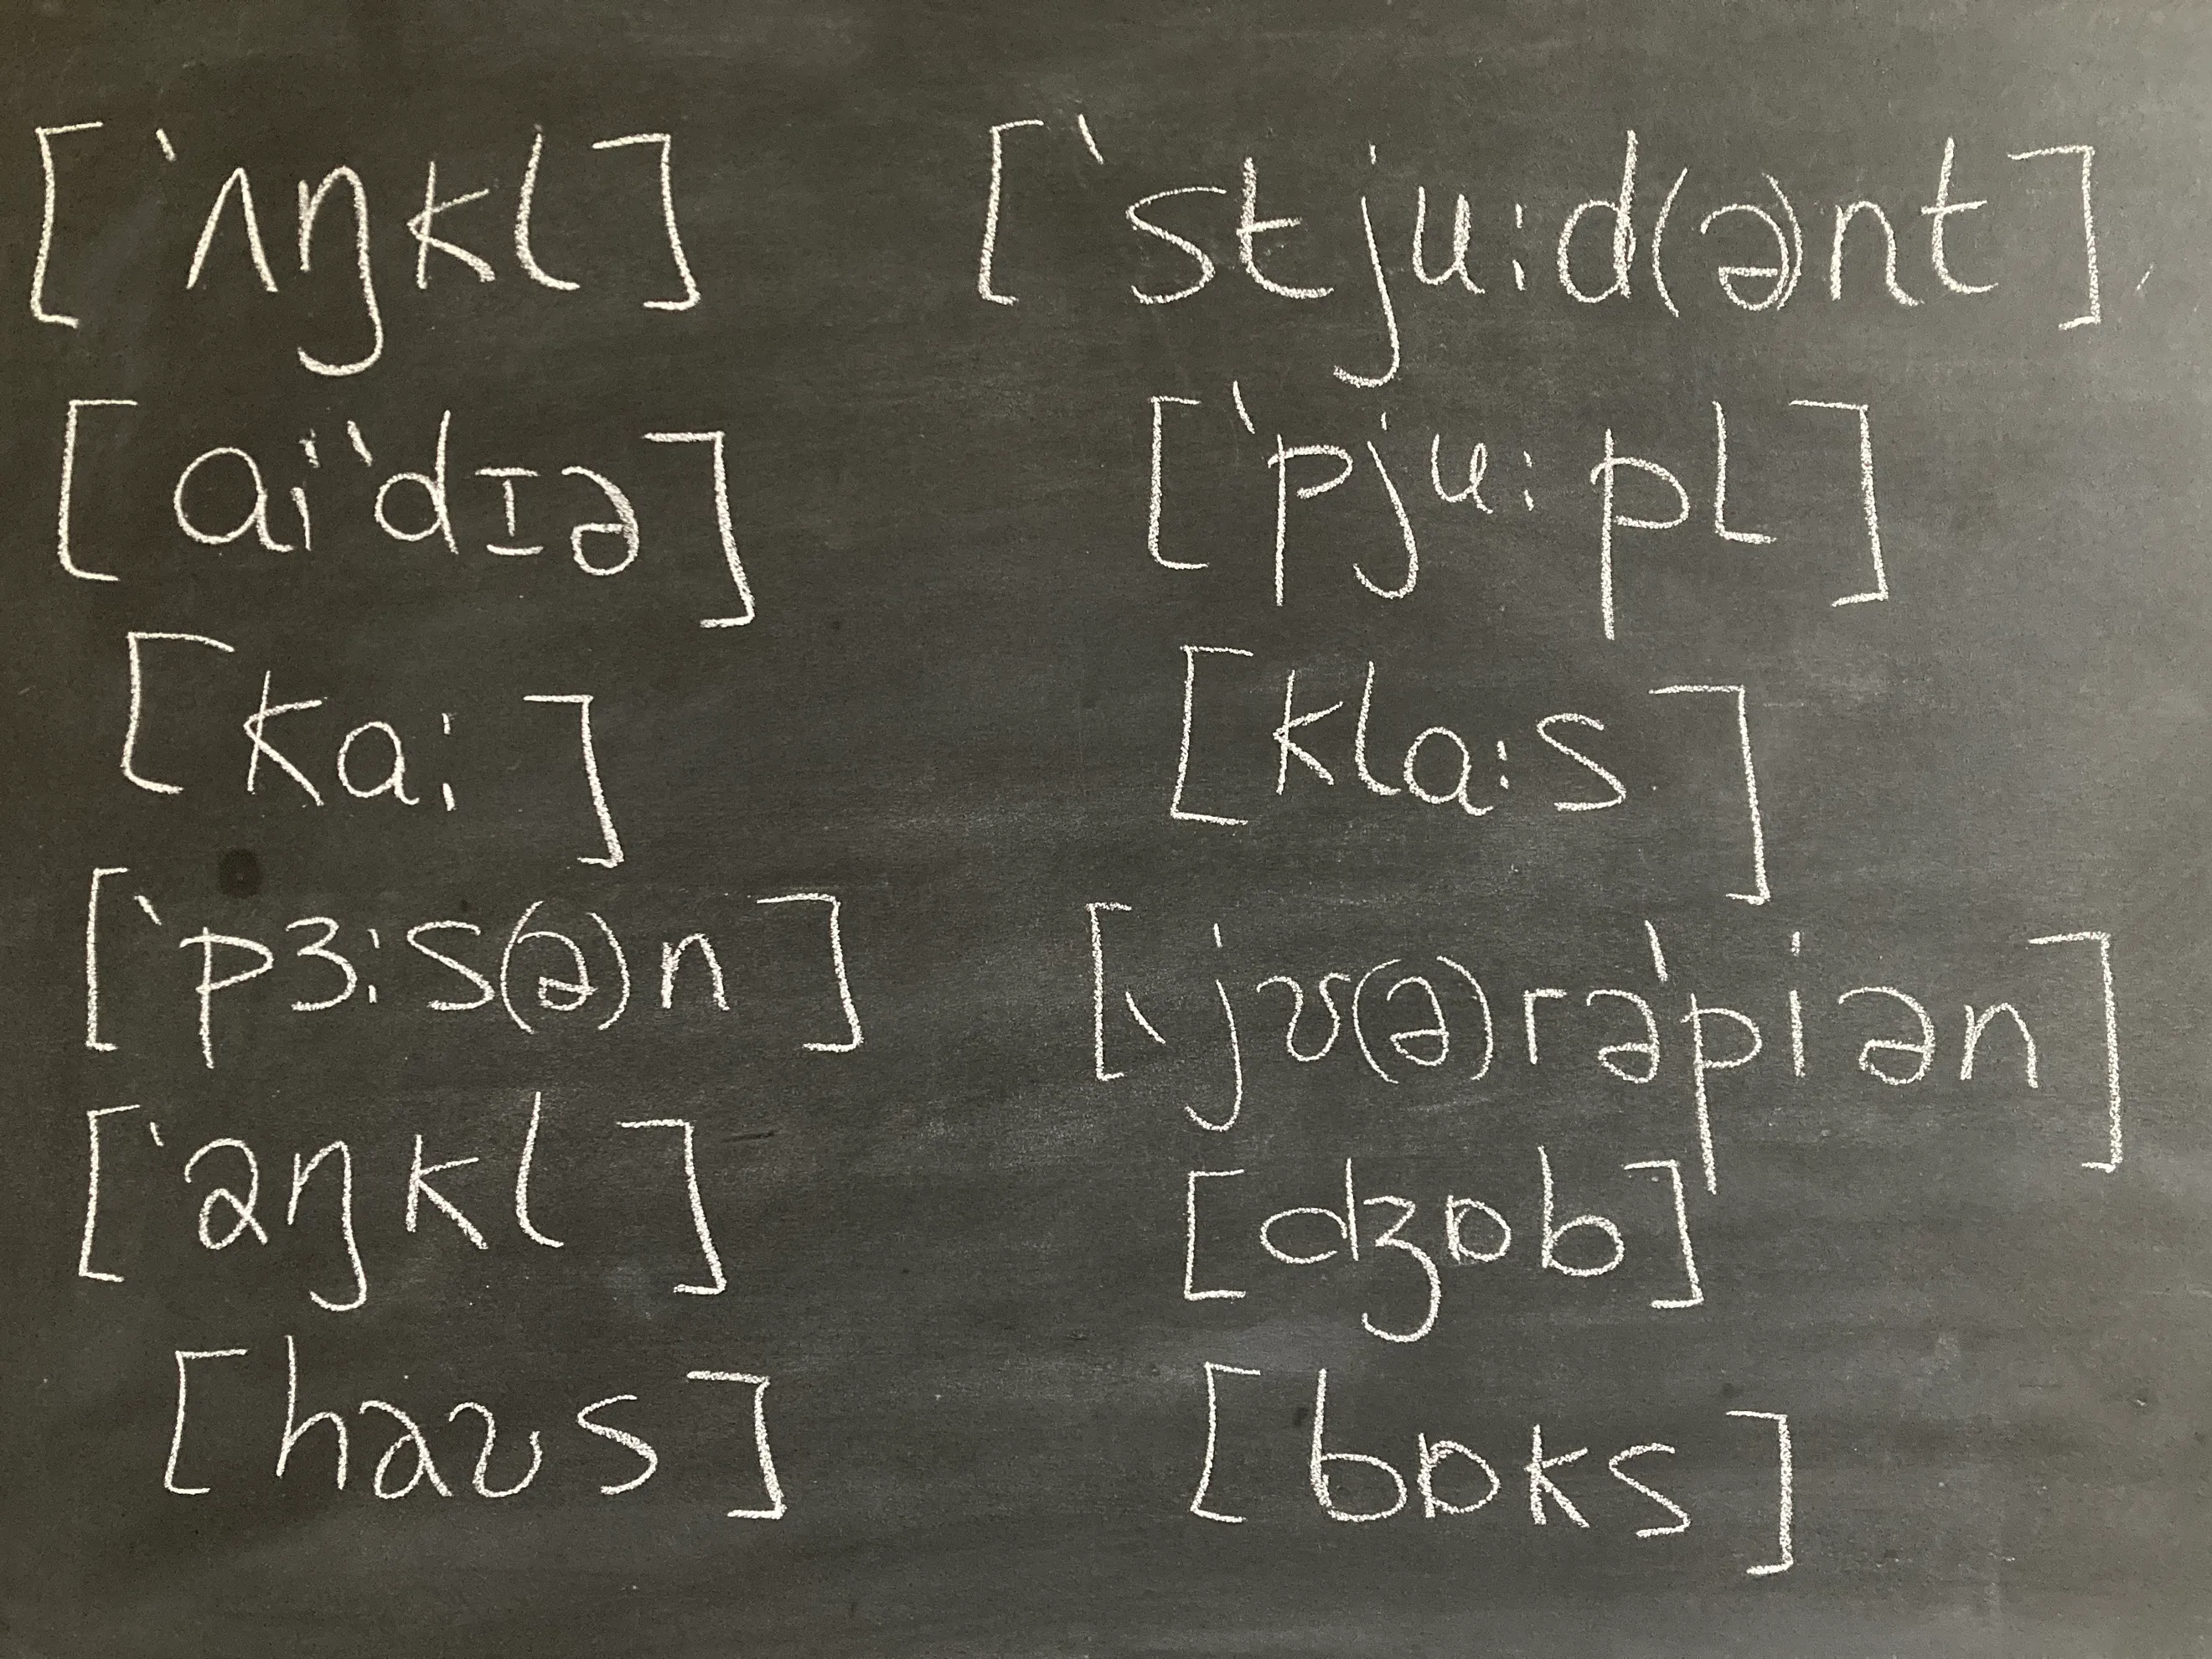 [ˈʌŋkl]
[aiˈˈdɪə]
[ka:]
[ˈpɜ:s(ə)n]
[ˈəŋkl]
[haʊs]
[ˈstju:d(ə)nt]
[ˈpju:pl]
[kla:s]
[ˌjʊ(ə)rəˈpiən]
[dʒɒb]
[bɒks]